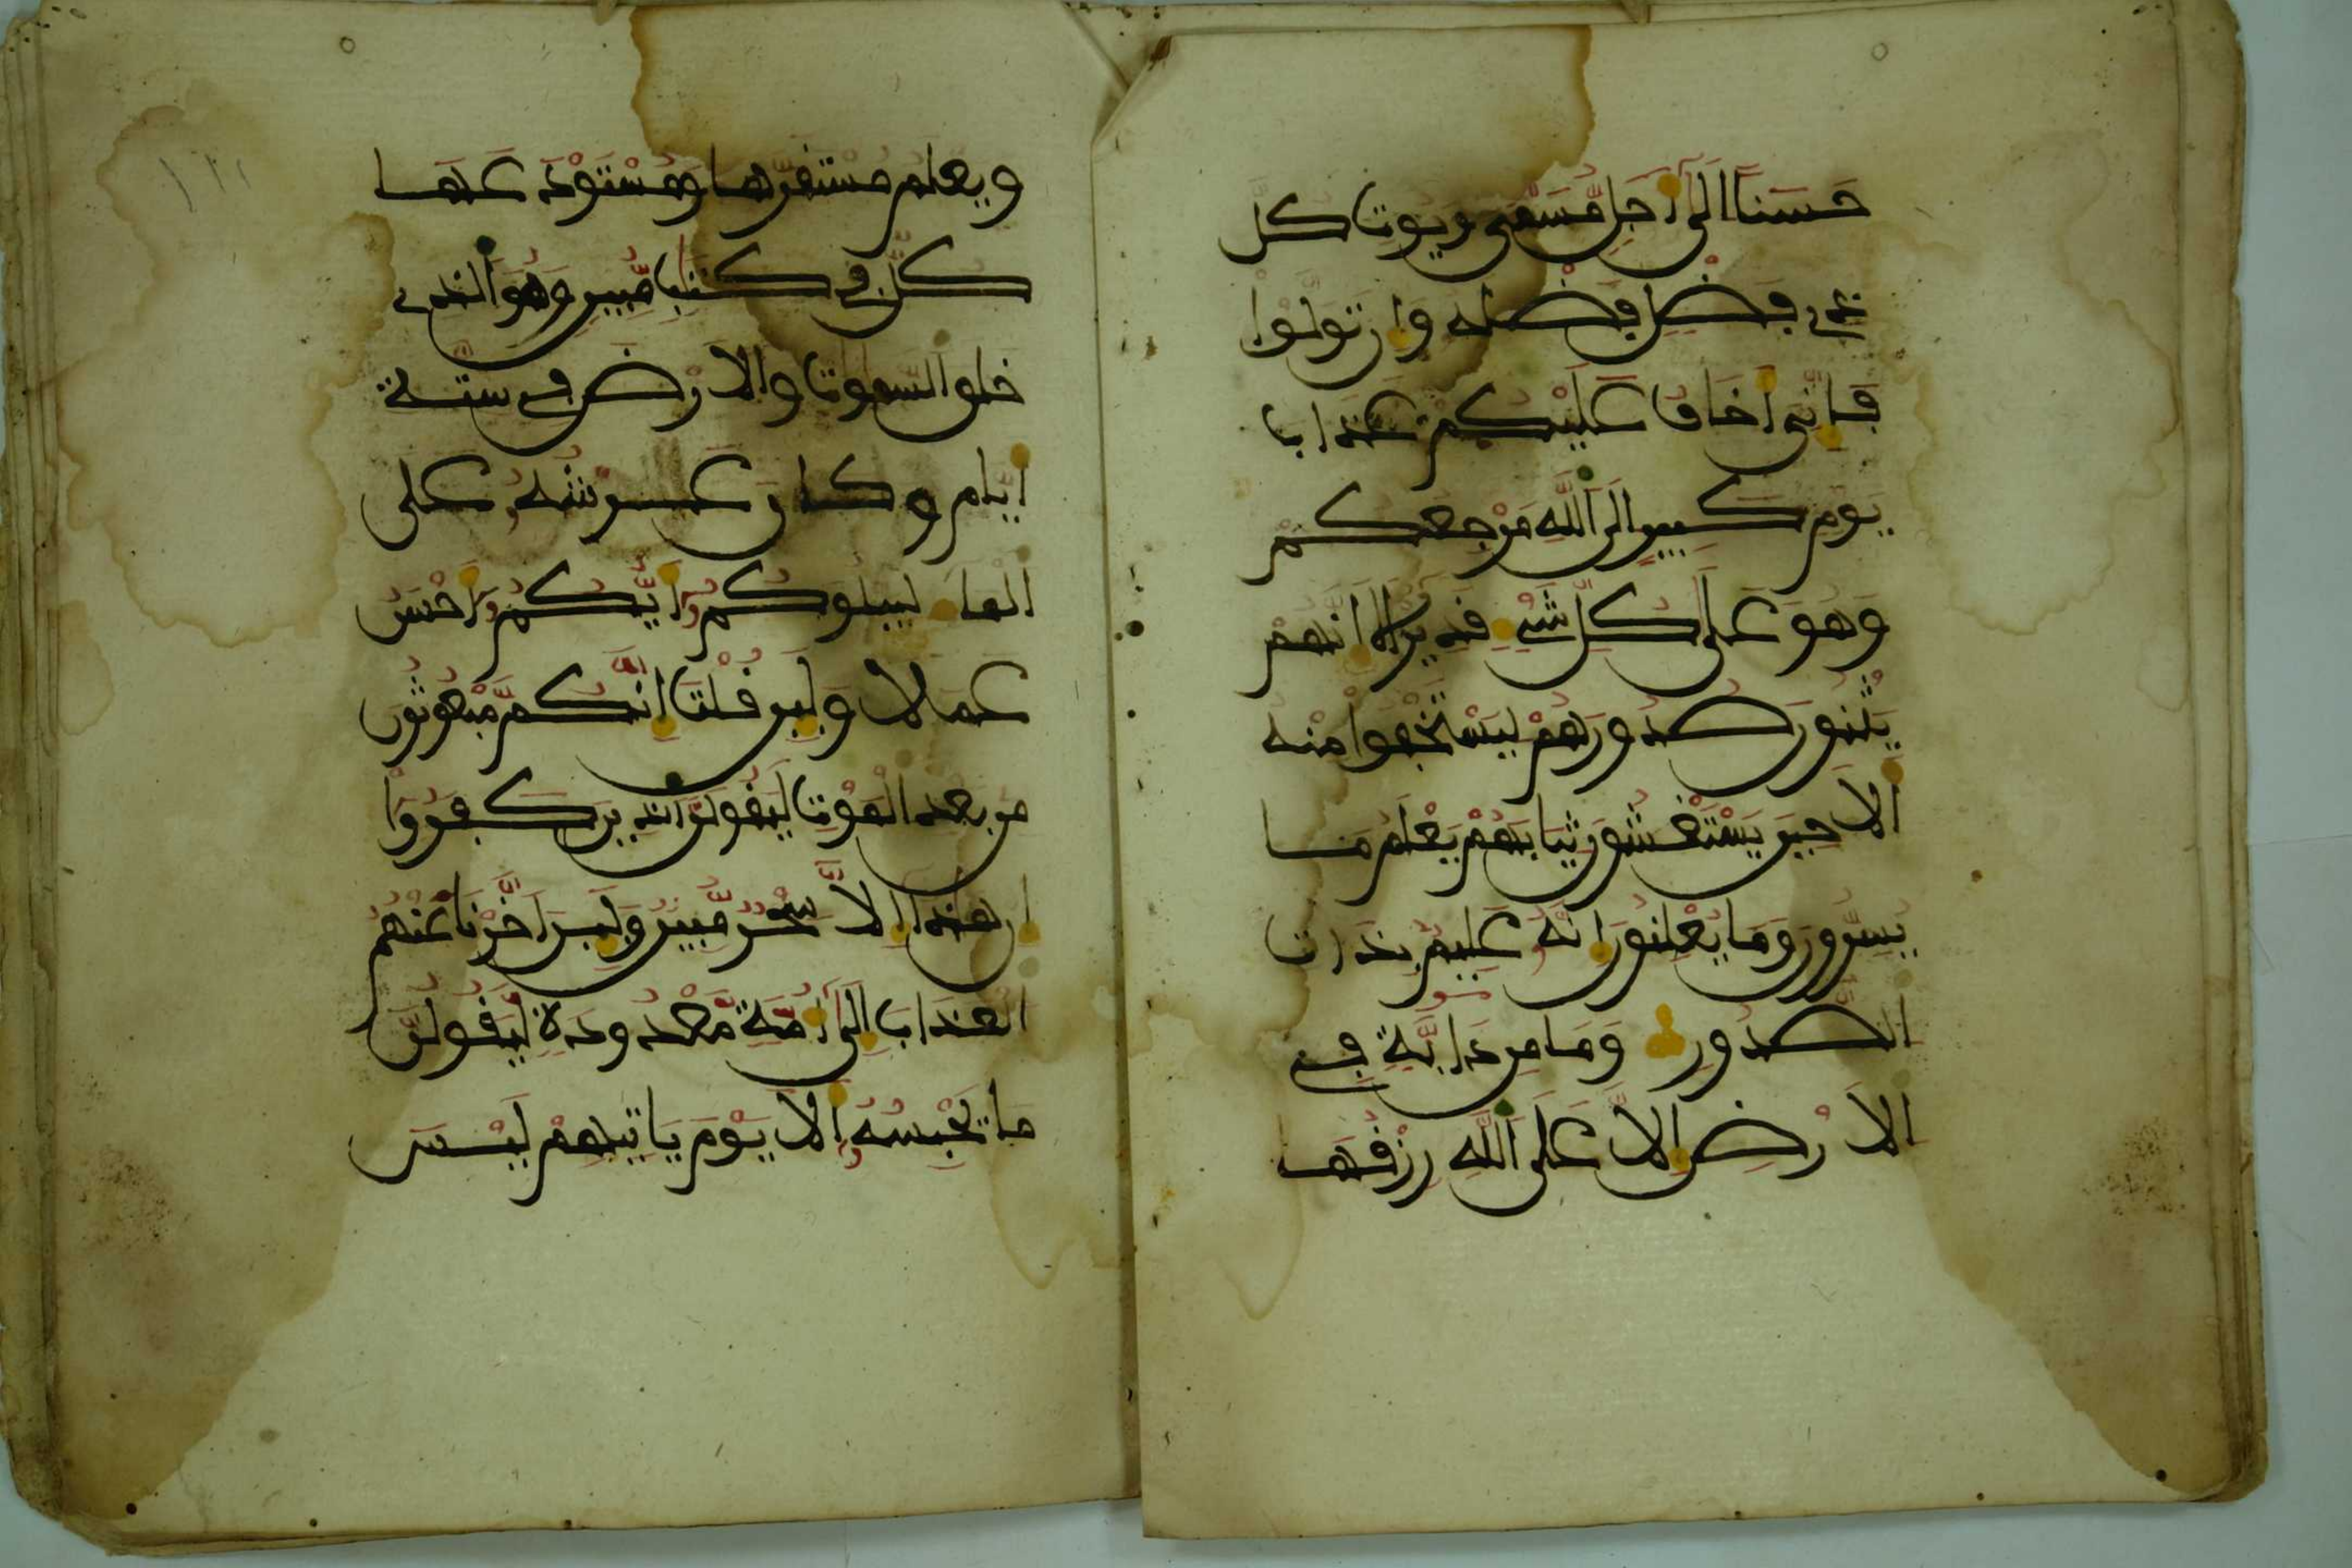 حَسَنًا اِلَىٰٓ أَجَلٖ مُّسَمّٗى وَيُوتِ كُلَّ
ذِے فَضْلٖ فَضْلَهُ وَإِن تَوَلَّوْا
فَإِنِّىَ أَخَافُ عَلَيْكُمْ عَذَابَ
يَوْمٖ كَبِيرٍ اِلَى اَللَّهِ مَرْجِعُكُمْ
وَهُوَ عَلَىٰ كُلِّ شَےْءٖ قَدِيرٌ اَلَآ إِنَّهُمْ
يَثْنُونَ صُدُورَهُمْ لِيَسْتَخْفُوا مِنْهُ
أَلَا حِينَ يَسْتَغْشُونَ ثِيَابَهُمْ يَعْلَمُ مَا
يُسِرُّونَ وَمَا يُعْلِنُونَ إِنَّهُۥ عَلِيمُۢ بِذَاتِ
اِلصُّدُورِ وَمَا مِن دَآبَّةٖ فِے
اِلَارْضِ إِلَّا عَلَى اَللَّهِ رِزْقُهَا
وَيَعْلَمُ مُسْتَقَرَّهَا وَمُسْتَوْدَعَهَا
كُلّٞ فِے كِتَٰبٖ مُّبِينٖ وَهُوَ اَلذِے
خَلَقَ اَلسَّمَٰوَٰتِ وَالَارْضَ فِے سِتَّةِ
أَيَّامٖ وَكَانَ عَرْشُهُۥ عَلَى
اَلْمَآءِ لِيَبْلُوَكُمُۥٓ أَيُّكُمُۥٓ أَحْسَنُ
عَمَلًا وَلَئِن قُلْتَ إِنَّكُم مَّبْعُوثُونَ
مِنۢ بَعْدِ اِلْمَوْتِ لَيَقُولَنَّ اَلذِينَ كَفَرُوٓا
إِنْ هَٰذَآ إِلَّا سِحْرٞ مُّبِينٞ وَلَئِنَ اَخَّرْنَا عَنْهُمُ
اُلْعَذَابَ إِلَىٰٓ أُمَّةٖ مَّعْدُودَةٖ لَّيَقُولُنَّ
مَا يَحْبِسُهُۥٓ أَلَا يَوْمَ يَاتِيهِمْ لَيْسَ